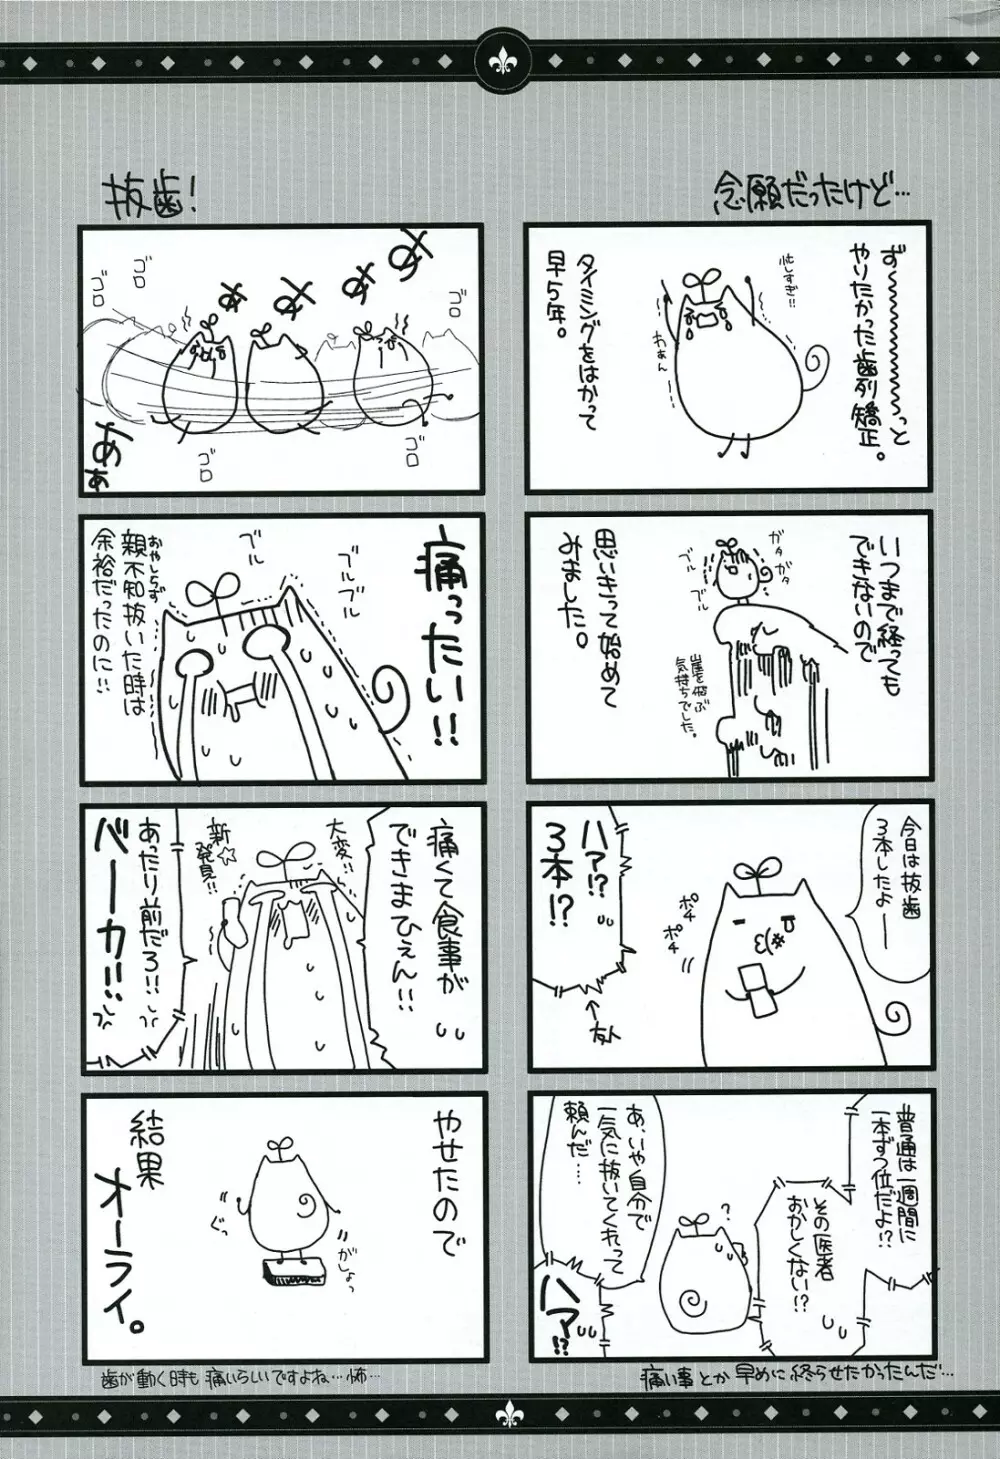 念願だったけど…
ず〜〜〜〜〜っと
やりたかった歯列矯正。
忙しすぎ!!
わぁん
タイミングをはかって
早5年。
いつまで経っても
できないので
ガタガタ
ブル
ブル
思いきって始めて
みました。
崖を飛ぶ
気持ちでした。
今日は抜歯
3本したよ——
ポチ
ポチ
ハァ!?
3本!?
←友人
普通は一週間に
一本ずつ位だよ!?
その医者
おかしくない!?
?
あ、いや自分で
一気に抜いてくれって
頼んだ……
ハァ!?
痛い事とか早めに終らせたかったんだ…
抜歯!
ゴロ
ゴロ
ゴロ
ゴロ
ゴロ
あぁ
痛ったい!!
ブル
ブル
ブル
おやしらず
親不知抜いた時は
余裕だったのに!!
痛くて食事が
できまひぇん!!
大変!!
新☆
発見!!
あたり前だろ!!
バーカ!!
やせたので
がしょっ
ぐっ
結果
オーライ。
歯が動く時も痛いらしいですよね…怖…